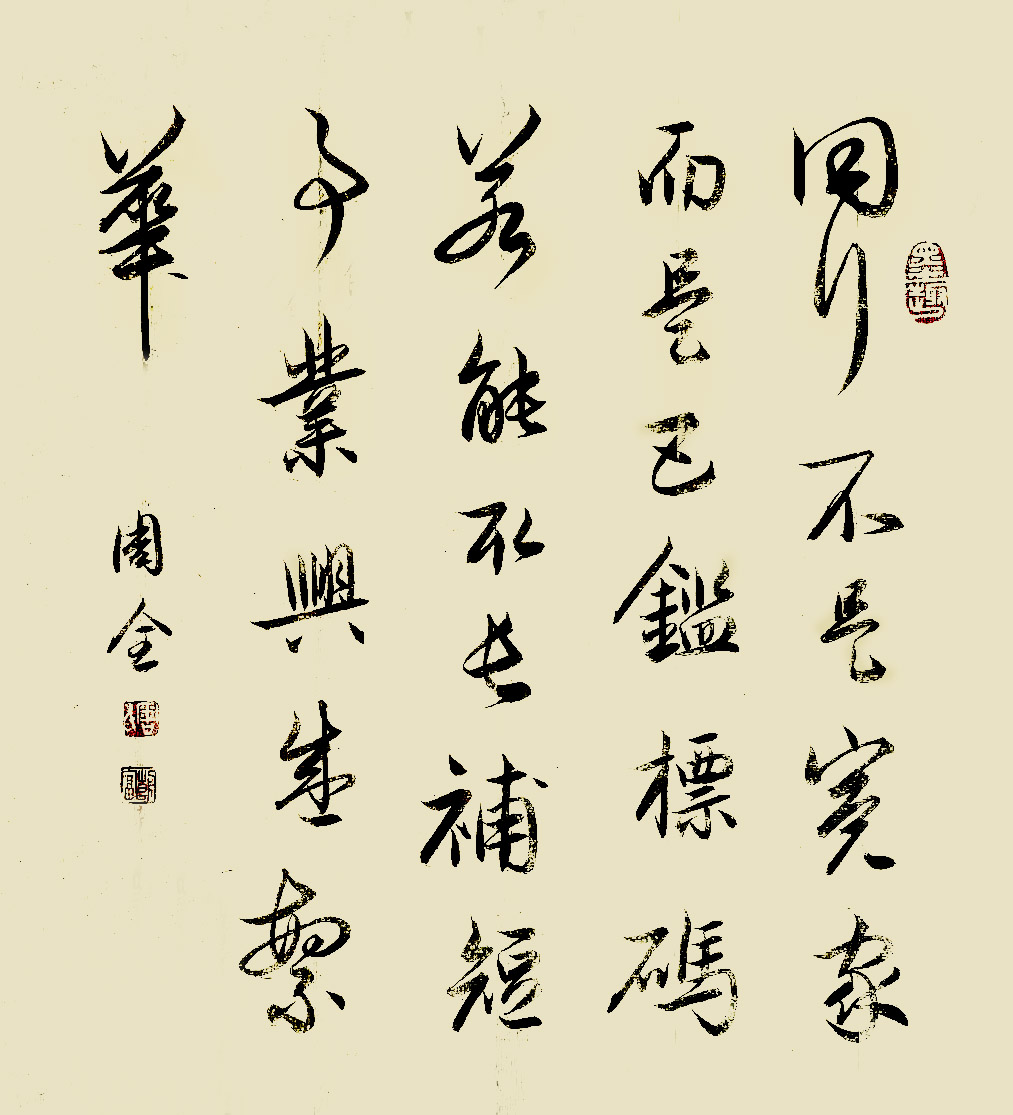 同行不是寃家
而是己鑑標碼
若能取長補短
事業興盛繁
華
周全